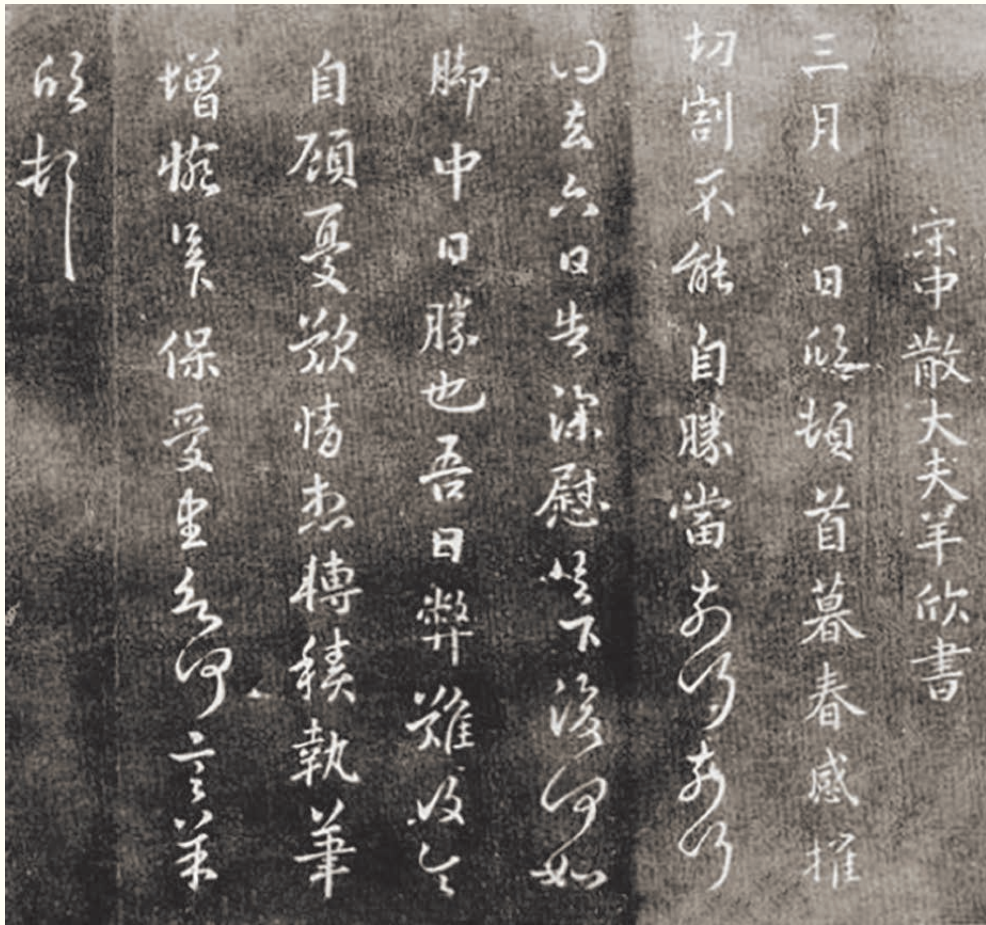 宋中散大夫羊欣書
三月六日欣頓首暮春感摧
切割不能自勝當奈何奈何
去六日告深慰足下復何如
脚中日勝也吾日弊難復令
自顧憂歎情想轉積執筆
增惋保愛書何言羊
欣頓